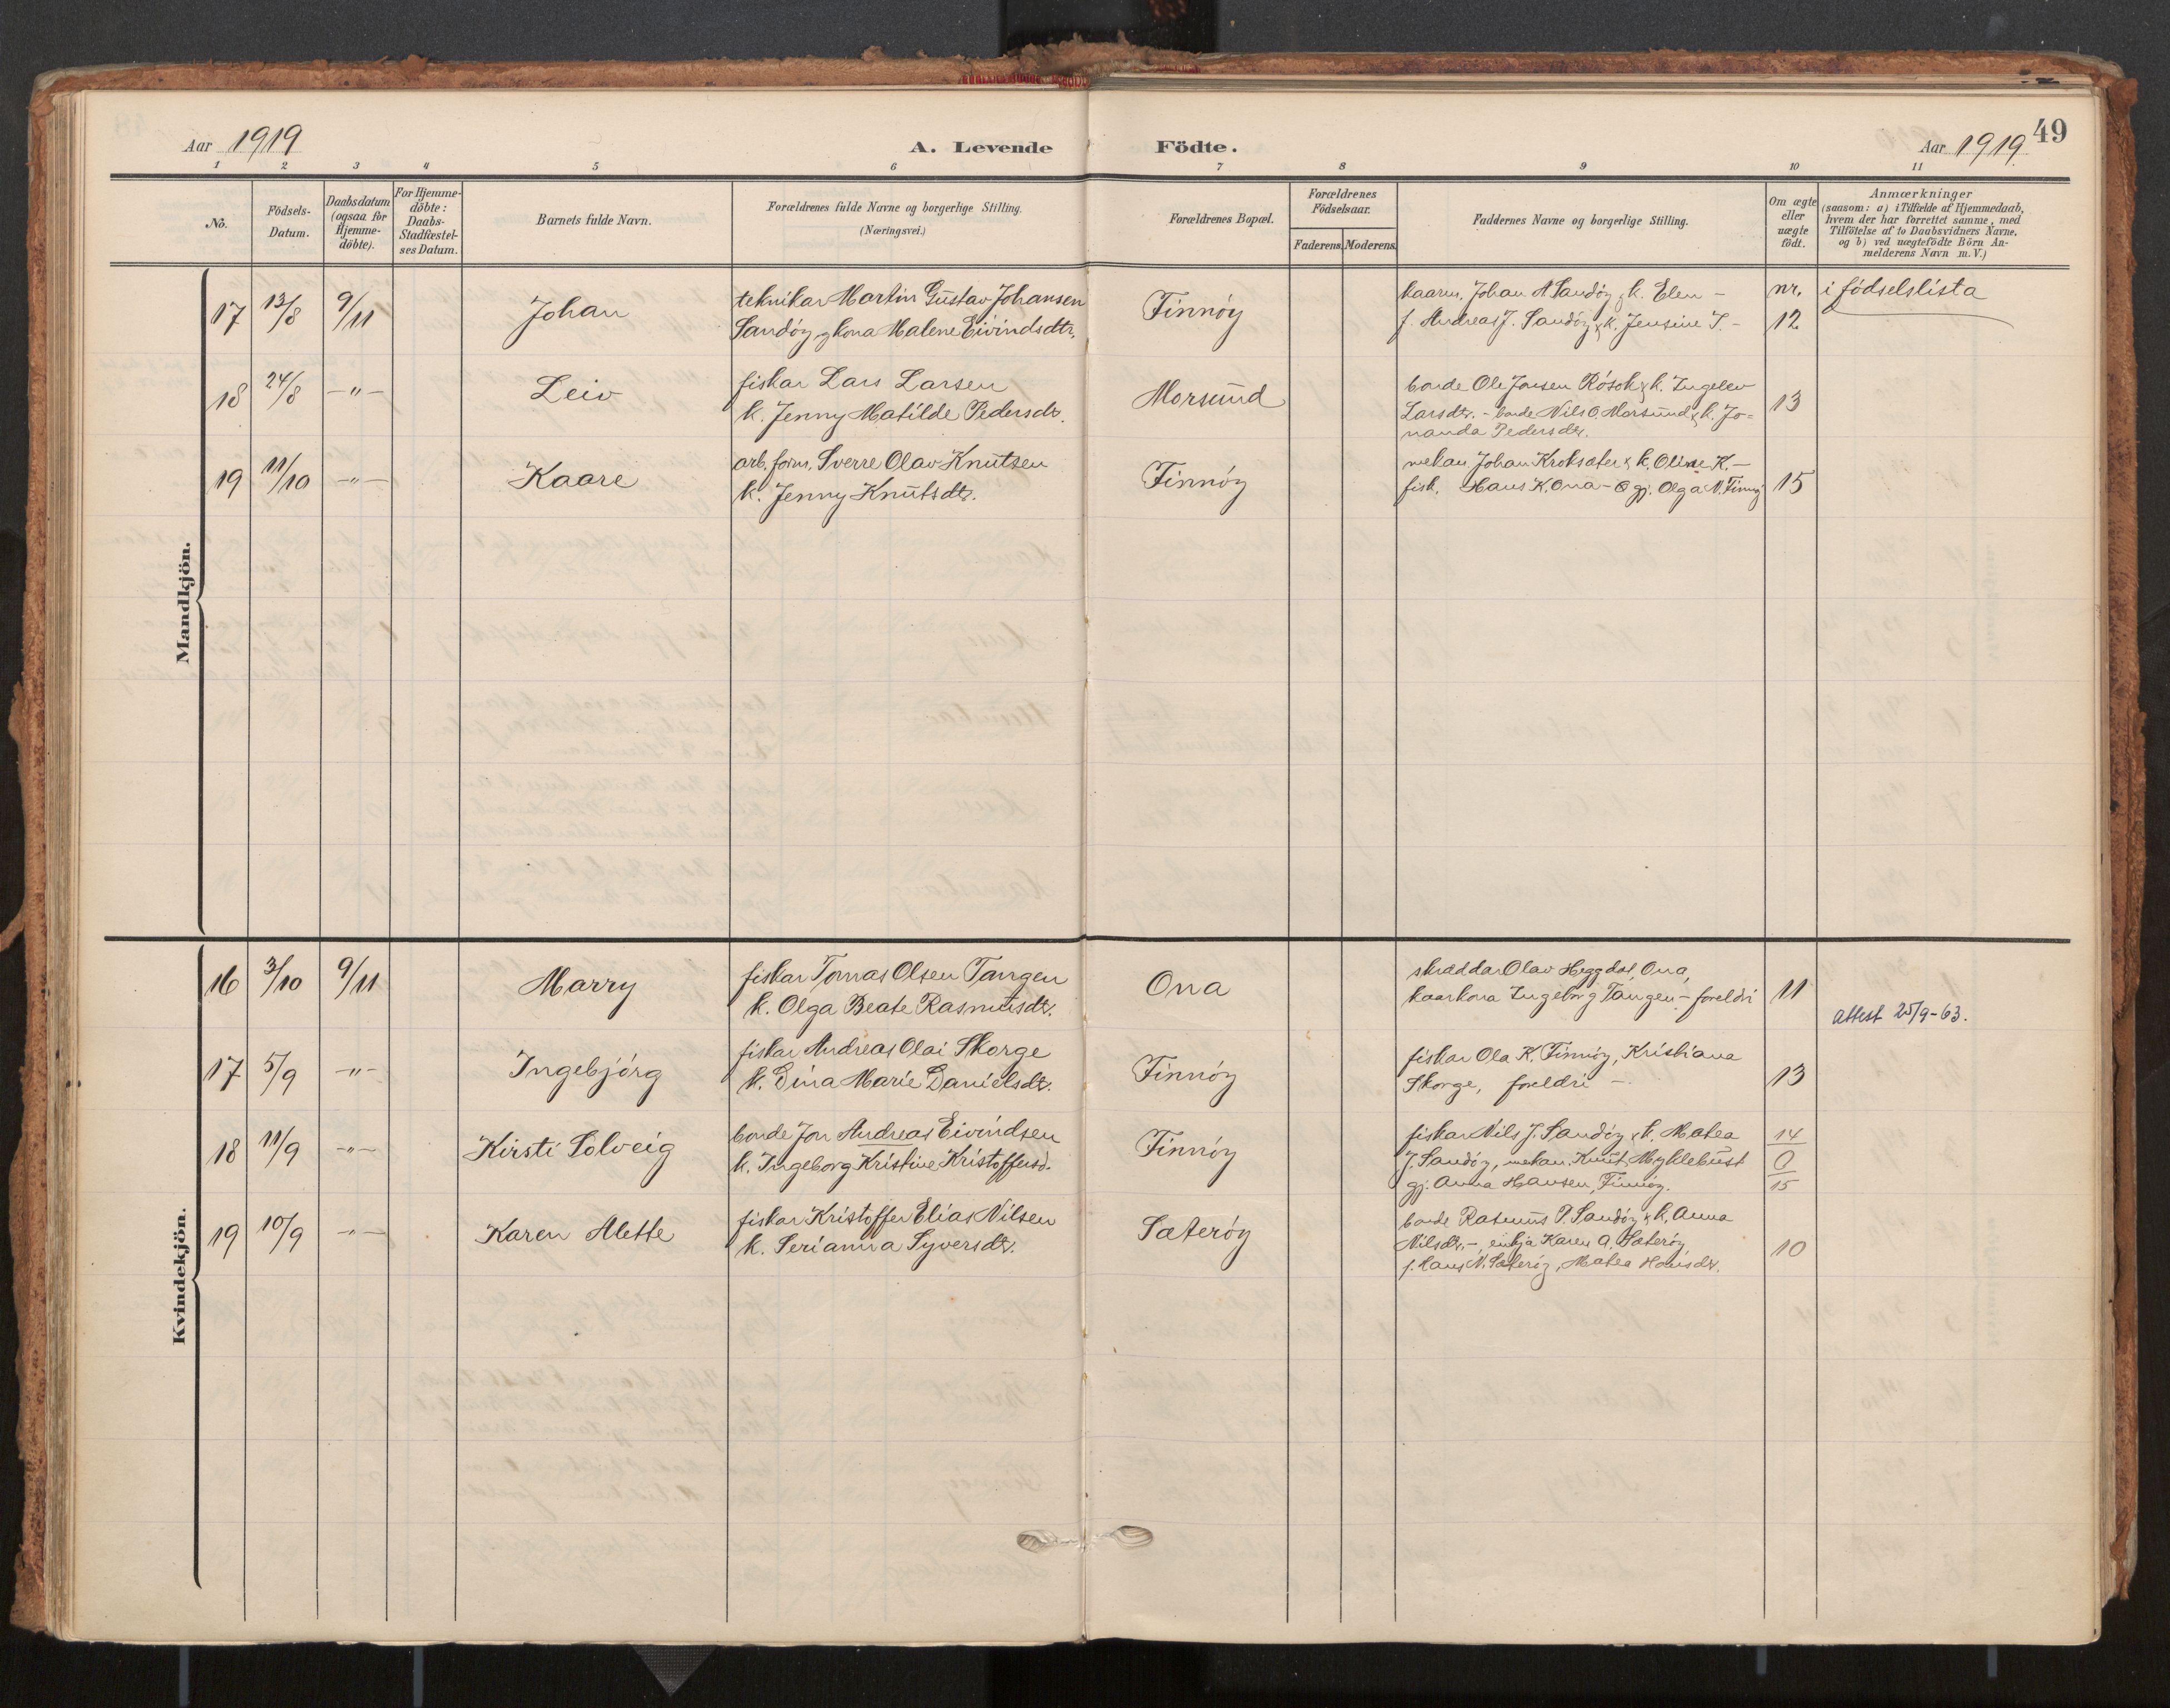 49
Aar 1919
A. Levende Födte.
Aar 1919
1 2 3 4 5 6 7 8 9 10 11
No.
Födsels-
Datum.
Daabsdatum
(ogsaa for
Hjemme-
döbte).
For Hjemme-
döbte:
Daabs-
Stadfæstel-
ses Datum.
Barnets fulde Navn.
Forældrenes fulde Navne og borgerlige Stilling.
(Næringsvei.)
Forældrenes Bopæl.
Forældrenes
Födselsaar.
Faderens. Moderens.
Faddernes Navne og borgerlige Stilling.
Om ægte
eller
uægte
födt.
Anmærkninger
(saasom: a) i Tilfælde af Hjemmedaab,
hvem der har forrettet samme, med
Tilföielse af to Daabsvidners Navne,
og b) ved uægtefödte Börn An-
melderens Navn m. V.)
Mandkjön.
17 13/8 9/11 Johan
teknikar Martin Gustav Johansen
Sandöy og kona Malene Eivindsdtr.
Finnöy
kaarm. Johan A Sandöy & k. Elen -
f. Andreas J. Sandöy & k. Jensine S. -
nr.
12
i födselslista
18 24/8 -"- Leiv
fiskar Lars Larsen
k. Jenny Matilde Pedersdr.
Morsund
bonde Ole Jonsen Rösok & k. Ingelev
Larsdtr. - bonde Nils O. Morsund & k. Jo=
nanda Pedersdr.
13
19 11/10 -"- Kaare
arb. form. Sverre Olav Knutsen
k. Jenny Knutsdtr.
Finnöy
mekan. Johan Kroksæter & k. Oline K. -
fisk. Hans K. Ona - gj. Olga N. Finnöy
15
Kvindekjön.
16 3/10 9/11 Marry
fiskar Tomas Olsen Tangen
k. Olga Beate Rasmusdtr.
Ona
skræddar Olav Heggdal, Ona,
kaarkona Ingeborg Tangen - foreldri
11
attest 25/9-63.
17 5/9 -"- Ingebjörg
fiskar Andreas Olai Skorge
k. Dina Marie Danielsdtr.
Finnöy
fiskar Ola K. Finnöy, Kristiana
Skorge, foreldri -
13
18 11/9 -"- Kirsti Solveig
bonde Jon Andreas Eivindsen
k. Ingeborg Kristine Kristoffersd.
Finnöy
fiskar Nils J. Sandöy & k. Matea
J. Sandöy, mekan. Knut Myklebust
gj. Anna Hansen, Finnöy.
14
0
15
19 10/9 -"- Karen Alette
fiskar Kristoffer Elias Nilsen
k. Serianna Syversdtr.
Sæteröy
bonde Rasmus P. Sandöy & k. Anna
Nilsdtr. - enkja Karen A. Sæteröy
f. Hans N. Sæteröy, Matea Hansdr.
10